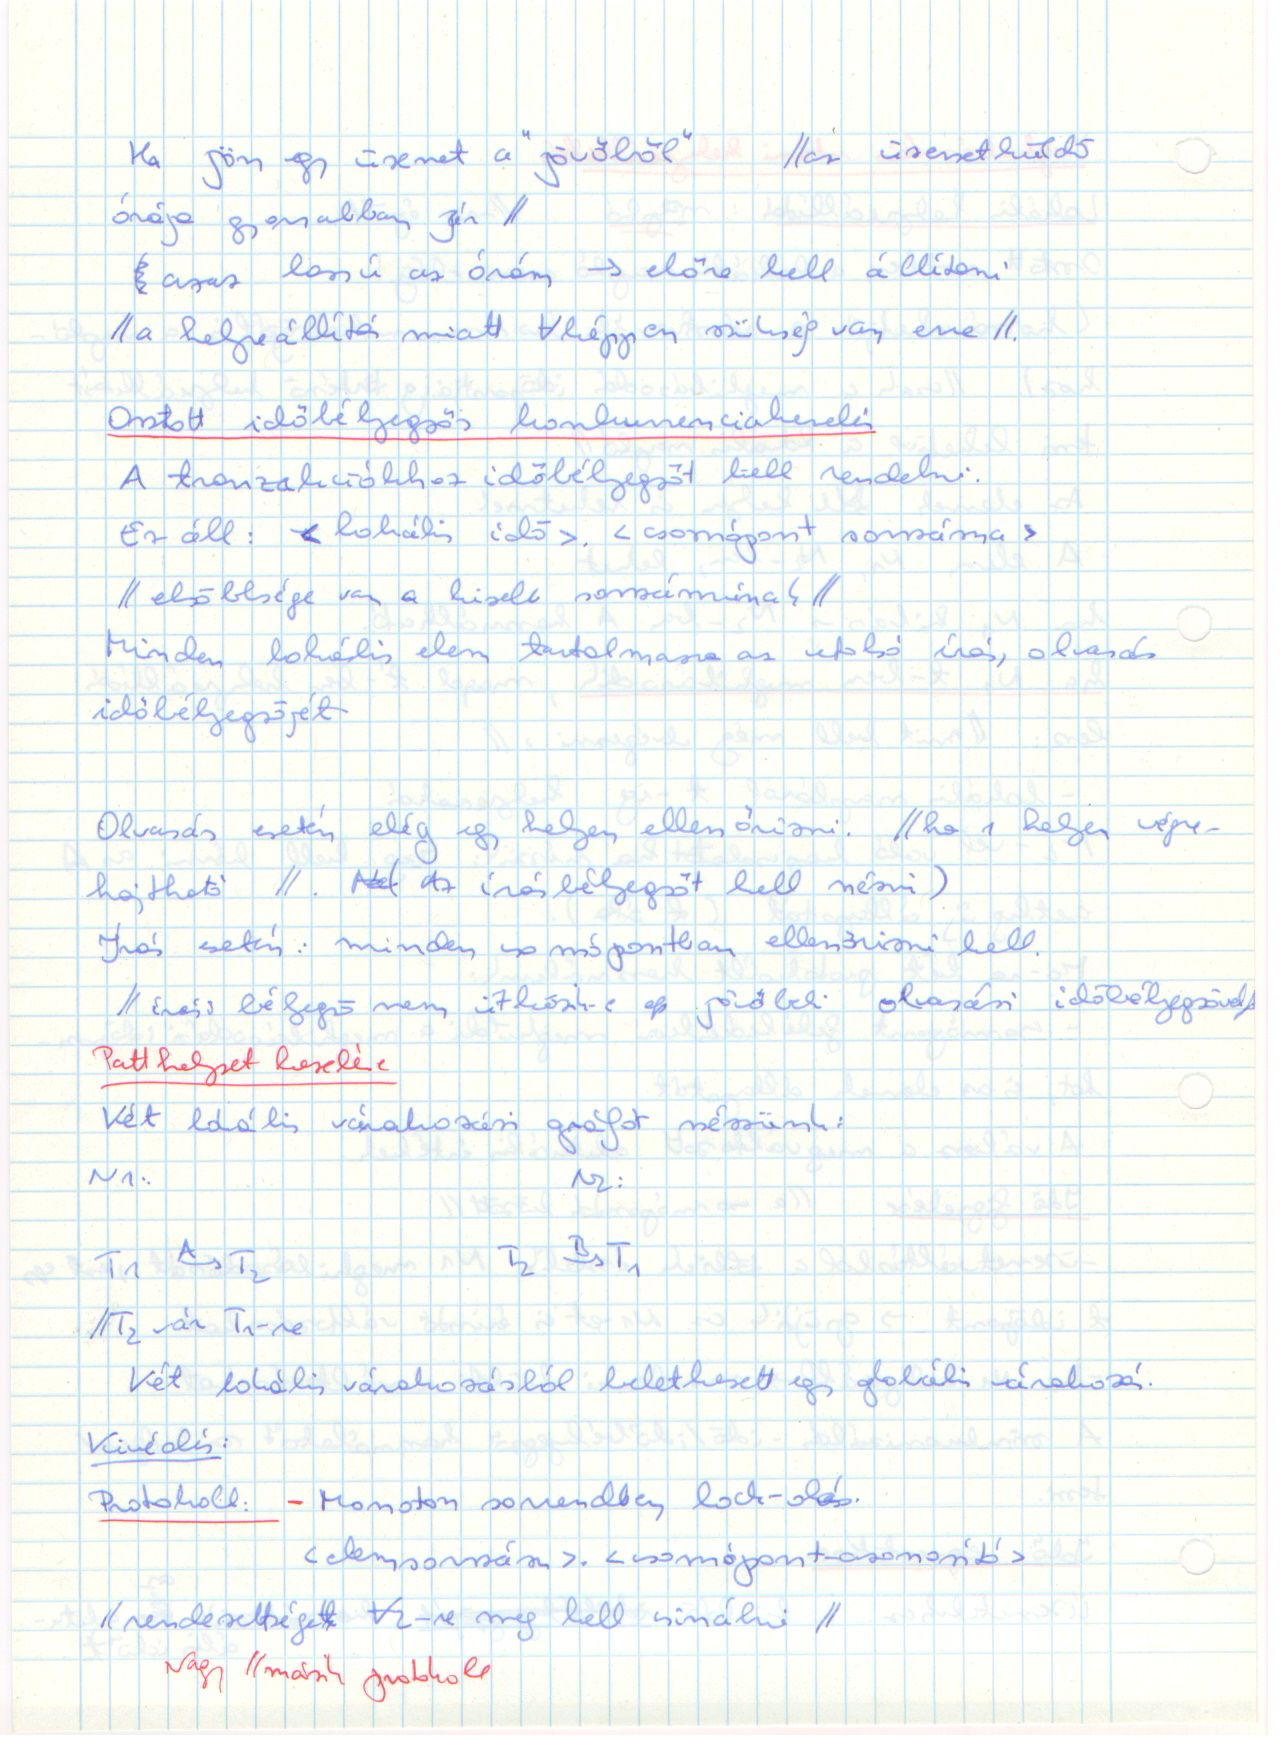 Ha jön egy üzenet a "jövőből" //az üzenetküldő
órája gyorsabban jár //
azaz lassú az órám → előre kell állítani
// a helyreállítás miatt ∀képpen szükség van erre //.
Osztott időbélyegzős konkurrenciakezelés
A tranzakciókhoz időbélyegzőt kell rendelni.
Ez áll: <lokális idő>.<csomópont sorszáma>
// elsőbbsége van a kisebb sorszámúnak //
Minden lokális elem tartalmazza az utolsó írás, olvasás
időbélyegzőjét
Olvasás esetén elég egy helyen ellenőrizni. //ha 1 helyen végre-
hajtható //. Az írásbélyegzőt kell nézni)
Írás esetén: minden csomópontban ellenőrizni kell.
// írási bélyegző nem ütközik-e egy jövőbeli olvasási időbélyegzővel//
Patthelyzet kezelése
Két lokális várakozási gráfot nézzünk:
N1: N2:
T1 A→ T2 T2 B→ T1
//T2 vár T1-re
Két lokális várakozásból keletkezett egy globális várakozás.
Kivédés:
Protokoll: - Monoton sorrendben lock-olás.
<elemsorszám>.<csomópont-azonosító>
// rendezettséget ∀2-re meg kell csinálni //
Vagy //másik protokoll